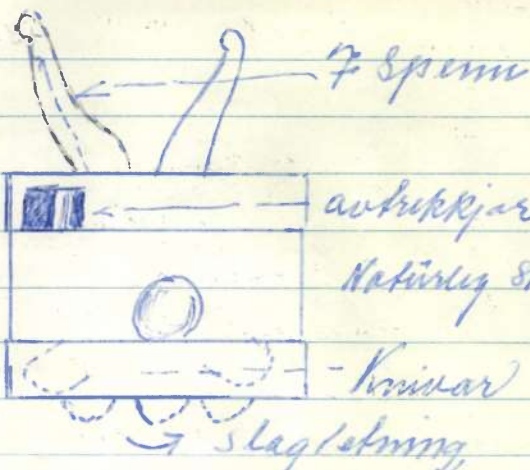 7 Spenn
avtrekkjar
Natürleg S
Knivar
Slagretning